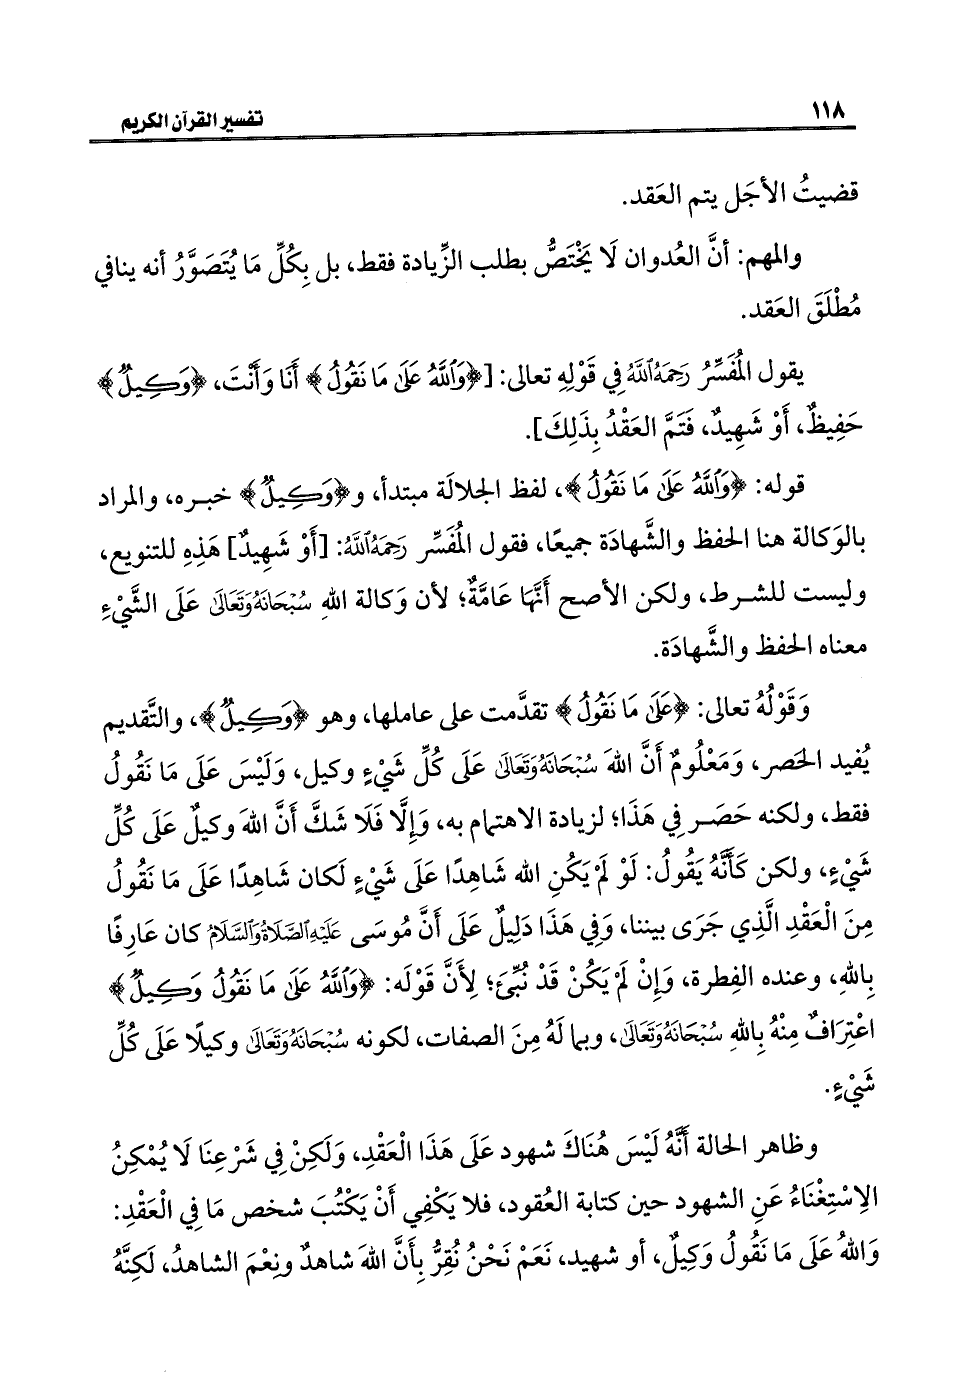 ١١٨
تفسير القرآن الكريم
قضيتُ الأجَل يتم العَقد.
والمهم: أنَّ العُدوان لَا يَخْتَصُّ بطلب الزِّيادة فقط، بل بِكُلِّ مَا يُتَصَوَّرُ أنه ينافي
مُطْلَقَ العَقد.
يقول المُفَسِّرُ رَحِمَهُ ٱللَّهُ فِي قَوْلِهِ تعالى: [﴿وَٱللَّهُ عَلَىٰ مَا نَقُولُ﴾ أَنَا وَأَنْتَ، ﴿وَكِيلٌ﴾
حَفِيظٌ، أَوْ شَهِيدٌ، فَتَمَّ العَقْدُ بِذَلِكَ].
قوله: ﴿وَٱللَّهُ عَلَىٰ مَا نَقُولُ﴾، لفظ الجلالَة مبتدأ، و﴿وَكِيلٌ﴾ خبره، والمراد
بالوَكالة هنا الحفظ والشَّهادَة جميعًا، فقول المُفَسِّر رَحِمَهُ ٱللَّهُ: [أَوْ شَهِيدٌ] هَذِهِ للتنويع،
وليست للشرط، ولكن الأصح أَنَّهَا عَامَّةٌ؛ لأن وَكالة اللهِ سُبْحَانَهُ وَتَعَالَىٰ عَلَى الشَّيْءِ
معناه الحفظ والشَّهادَة.
وَقَوْلُهُ تعالى: ﴿عَلَىٰ مَا نَقُولُ﴾ تقدَّمت على عاملها، وهو ﴿وَكِيلٌ﴾، والتَّقديم
يُفيد الحَصر، وَمَعْلُومٌ أَنَّ اللهَ سُبْحَانَهُ وَتَعَالَىٰ عَلَى كُلِّ شَيْءٍ وكيل، وَلَيْسَ عَلَى مَا نَقُولُ
فقط، ولكنه حَصَر فِي هَذَا؛ لزيادة الاهتمام به، وَإِلَّا فَلَا شَكَّ أَنَّ اللهَ وكيلٌ عَلَى كُلِّ
شَيْءٍ، ولكن كَأَنَّهُ يَقُولُ: لَوْ لَمْ يَكُنِ الله شَاهِدًا عَلَى شَيْءٍ لَكان شَاهِدًا عَلَى مَا نَقُولُ
مِنَ الْعَقْدِ الَّذِي جَرَى بيننا، وَفِي هَذَا دَلِيلٌ عَلَى أَنَّ مُوسَى عَلَيْهِ ٱلصَّلَاةُ وَٱلسَّلَامُ كان عَارِفًا
بِاللهِ، وعنده الفِطرة، وَإِنْ لَمْ يَكُنْ قَدْ نُبِّئَ؛ لِأَنَّ قَوْلَه: ﴿وَٱللَّهُ عَلَىٰ مَا نَقُولُ وَكِيلٌ﴾
اعْتِرَافٌ مِنْهُ بِاللهِ سُبْحَانَهُ وَتَعَالَىٰ، وبما لَهُ مِنَ الصفات، لكونه سُبْحَانَهُ وَتَعَالَىٰ وكيلًا عَلَى كُلِّ
شَيْءٍ.
وظاهر الحالة أَنَّهُ لَيْسَ هُنَاكَ شهود عَلَى هَذَا الْعَقْدِ، وَلَكِنْ فِي شَرْعِنَا لَا يُمْكِنُ
الِاسْتِغْنَاءُ عَنِ الشهود حين كتابة العُقود، فلا يَكْفِي أَنْ يَكْتُبَ شخص مَا فِي الْعَقْدِ:
وَاللهُ عَلَى مَا نَقُولُ وَكِيلٌ، أو شهيد، نَعَمْ نَحْنُ نُقِرُّ بِأَنَّ اللهَ شاهدٌ ونِعْمَ الشاهدُ، لَكِنَّهُ